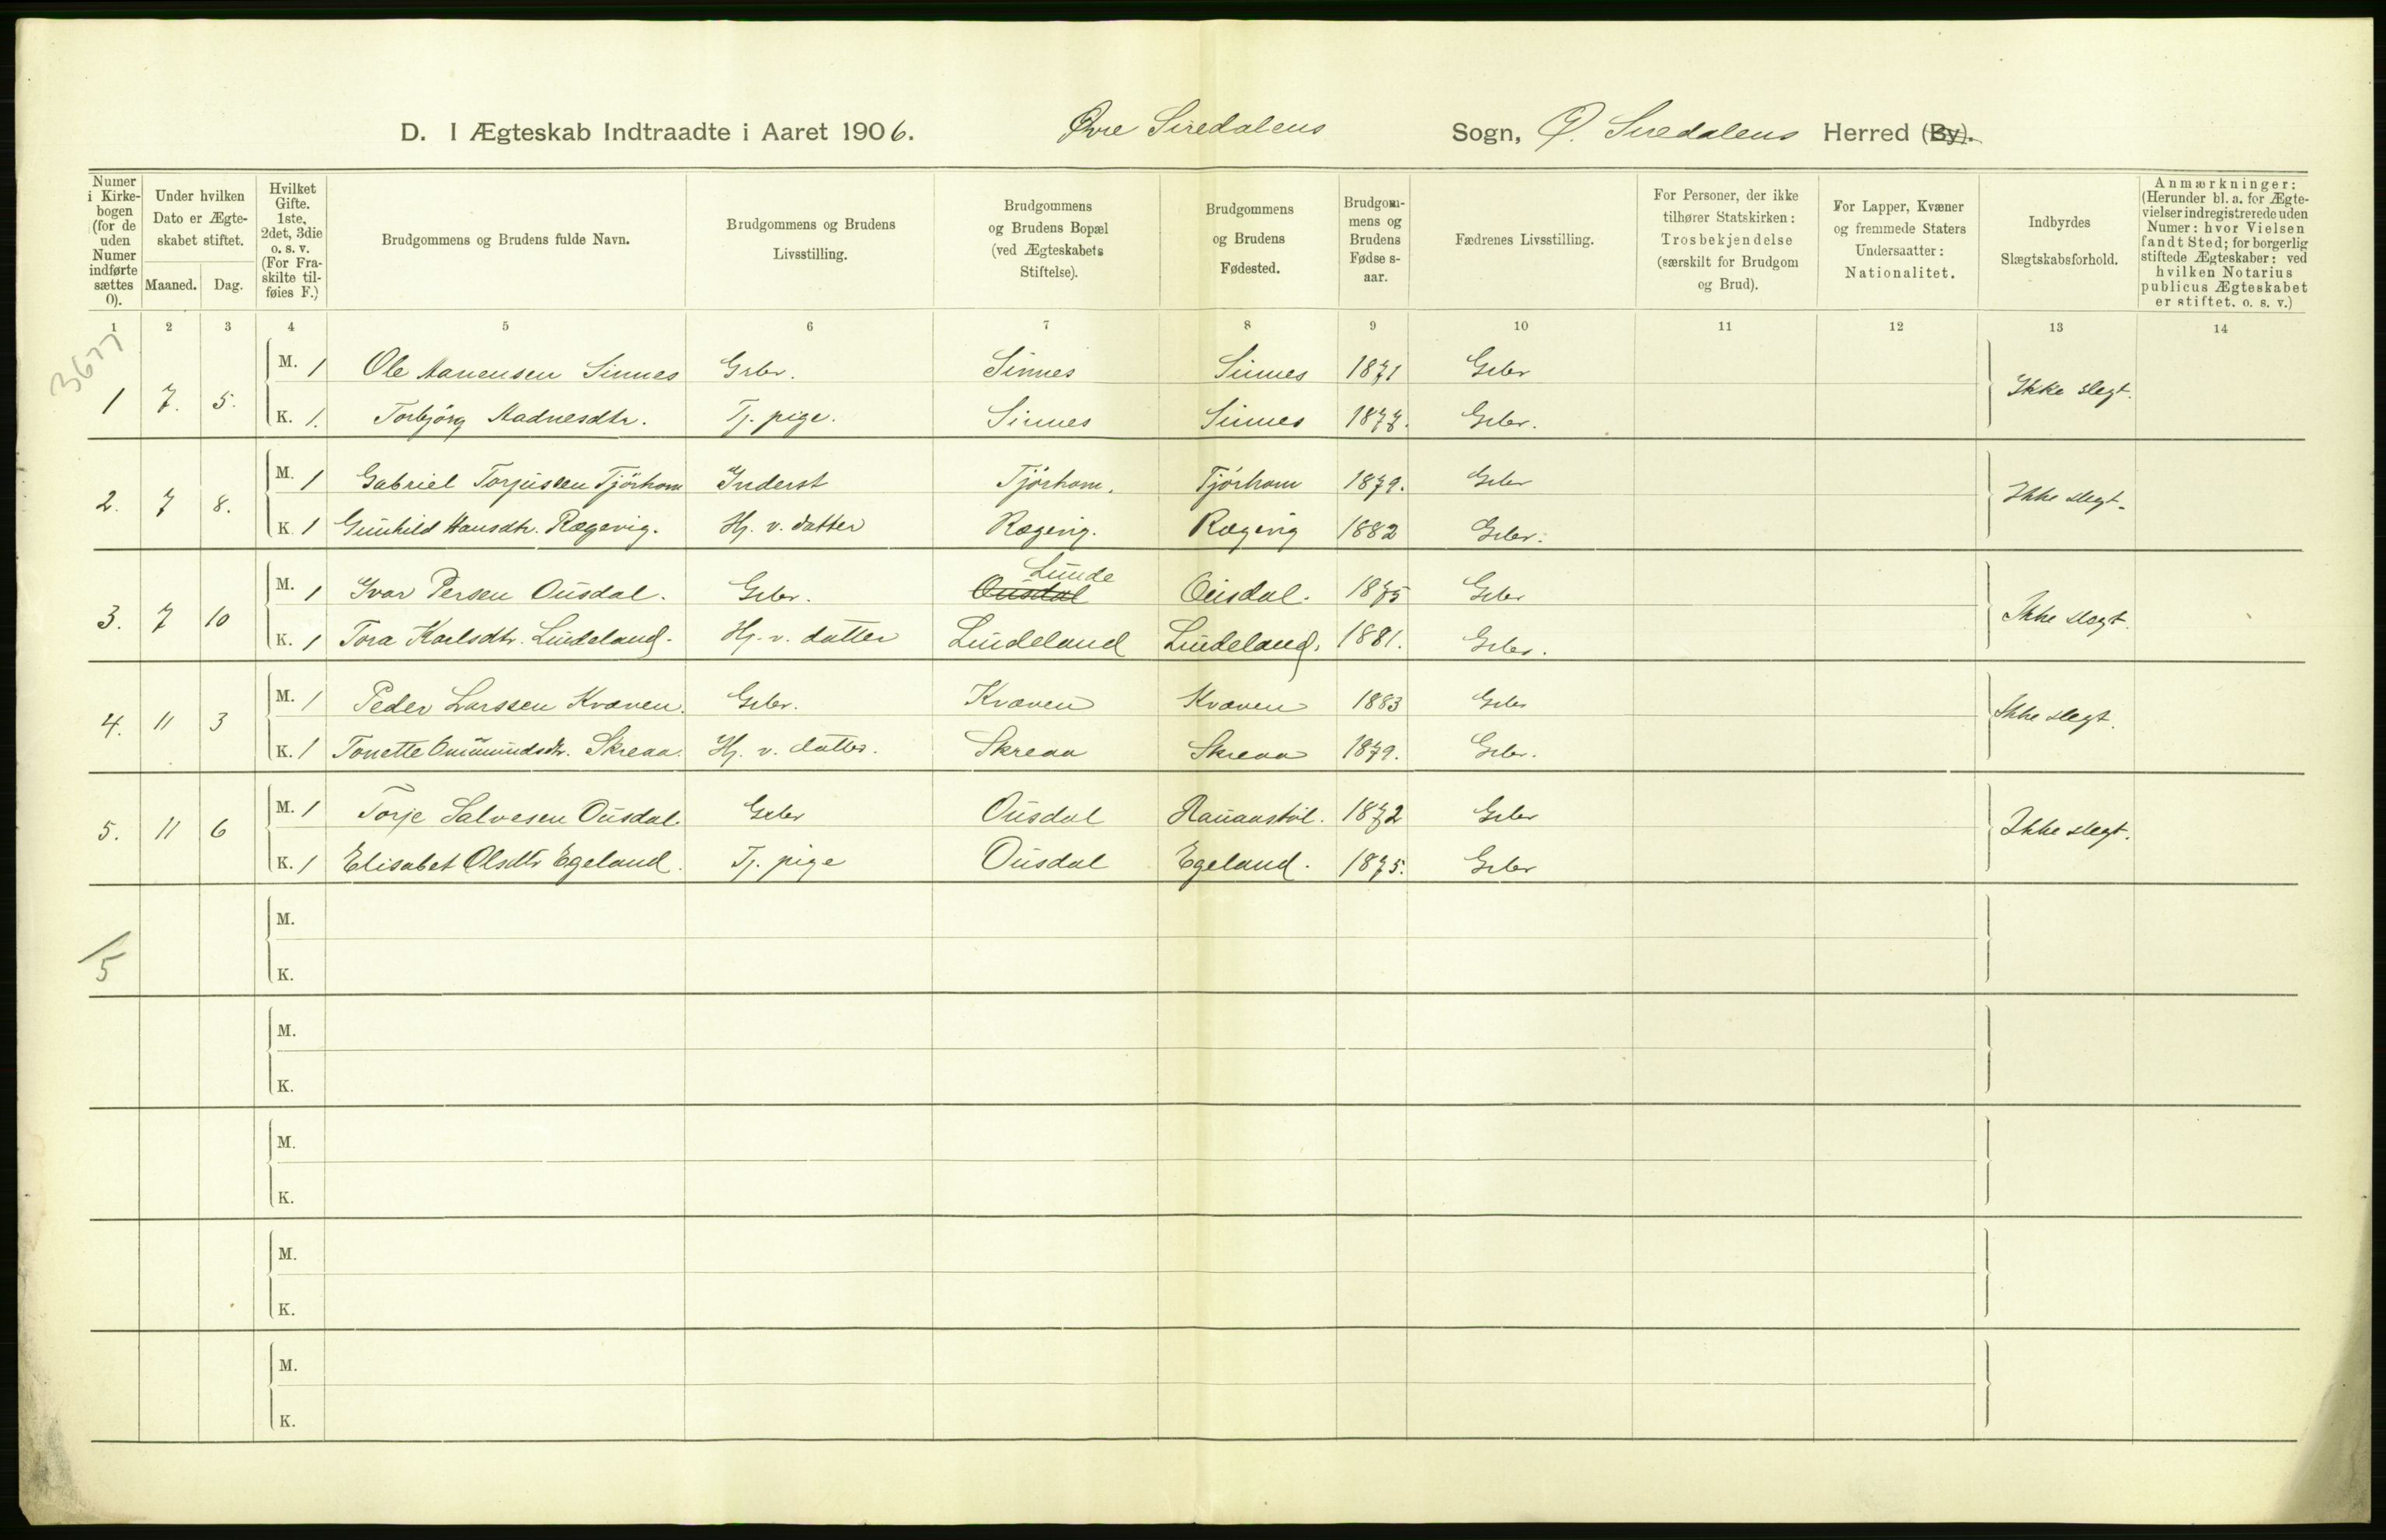 D. I Ægteskab Indtraadte i Aaret 1906. Øvre Siredalens Sogn, Ø. Siredalens Herred (By).
Numer i Kirke-bogen (for de uden Numer indførte sættes 0).
Under hvilken Dato er Ægte-skabet stiftet.
Maaned. Dag.
Hvilket Gifte. 1ste, 2det, 3die o. s. v. (For Fra-skilte til-føies F.)
Brudgommens og Brudens fulde Navn.
Brudgommens og Brudens Livsstilling.
Brudgommens og Brudens Bopæl (ved Ægteskabets Stiftelse).
Brudgommens og Brudens Fødested.
Brudgom-mens og Brudens Fødse s-aar.
Fædrenes Livsstilling.
For Personer, der ikke tilhører Statskirken: Trosbekjendelse (særskilt for Brudgom og Brud).
For Lapper, Kvæner og fremmede Staters Undersaatter: Nationalitet.
Indbyrdes Slægtskabsforhold.
Anmærkninger: (Herunder bl. a. for Ægte-vielser indregistrerede uden Numer: hvor Vielsen fandt Sted; for borgerlig stiftede Ægteskaber: ved hvilken Notarius publicus Ægteskabet er stiftet. o. s. v.)
1 2 3 4 5 6 7 8 9 10 11 12 13 14
3677
M. 1 Ole Sinnes Grbr. Sinnes Sinnes 1871 Grbr
1 7. 5. Ikke slegt.
K. 1. Torbjørg Aadnesdtr. Tj. pige. Sinnes Sinnes 1877. Grbr.
M. 1 Gabriel Torjussen Tjörhom Inderst Tjörhom. Tjörhom 1879. Grbr
2. 7 8. Ikke slegt.
K 1 Gunhild Hansdtr. Rægevig. Hj. v. datter Rægevig. Rægevig 1882 Grbr.
Lunde
M. 1 Ivar Persen Ousdal. Grbr. Ousdal Ousdal. 1875 Grbr
3. 7 10 Ikke slegt.
K. 1 Tora Karlsdtr. Lindeland. Hj. v. datter Lindeland Lindeland. 1881. Grbr.
M. 1 Peder Larssen Kvæven. Grbr. Kvæven Kvæven 1883 Grbr
4. 11 3 Ikke slegt.
K. 1 Tonette Ommundsdtr. Skreaa. Hj. v. datter. Skreaa Skreaa 1879. Grbr.
M. 1 Torje Salvesen Ousdal. Grbr Ousdal 1872 Grbr
5. 11 6 Ikke slegt.
K. 1 Elisabet Olsdtr Egeland. Tj. pige Ousdal Egeland. 1875. Grbr
M.
5
K.
M.
K.
M.
K.
M.
K.
M.
K.